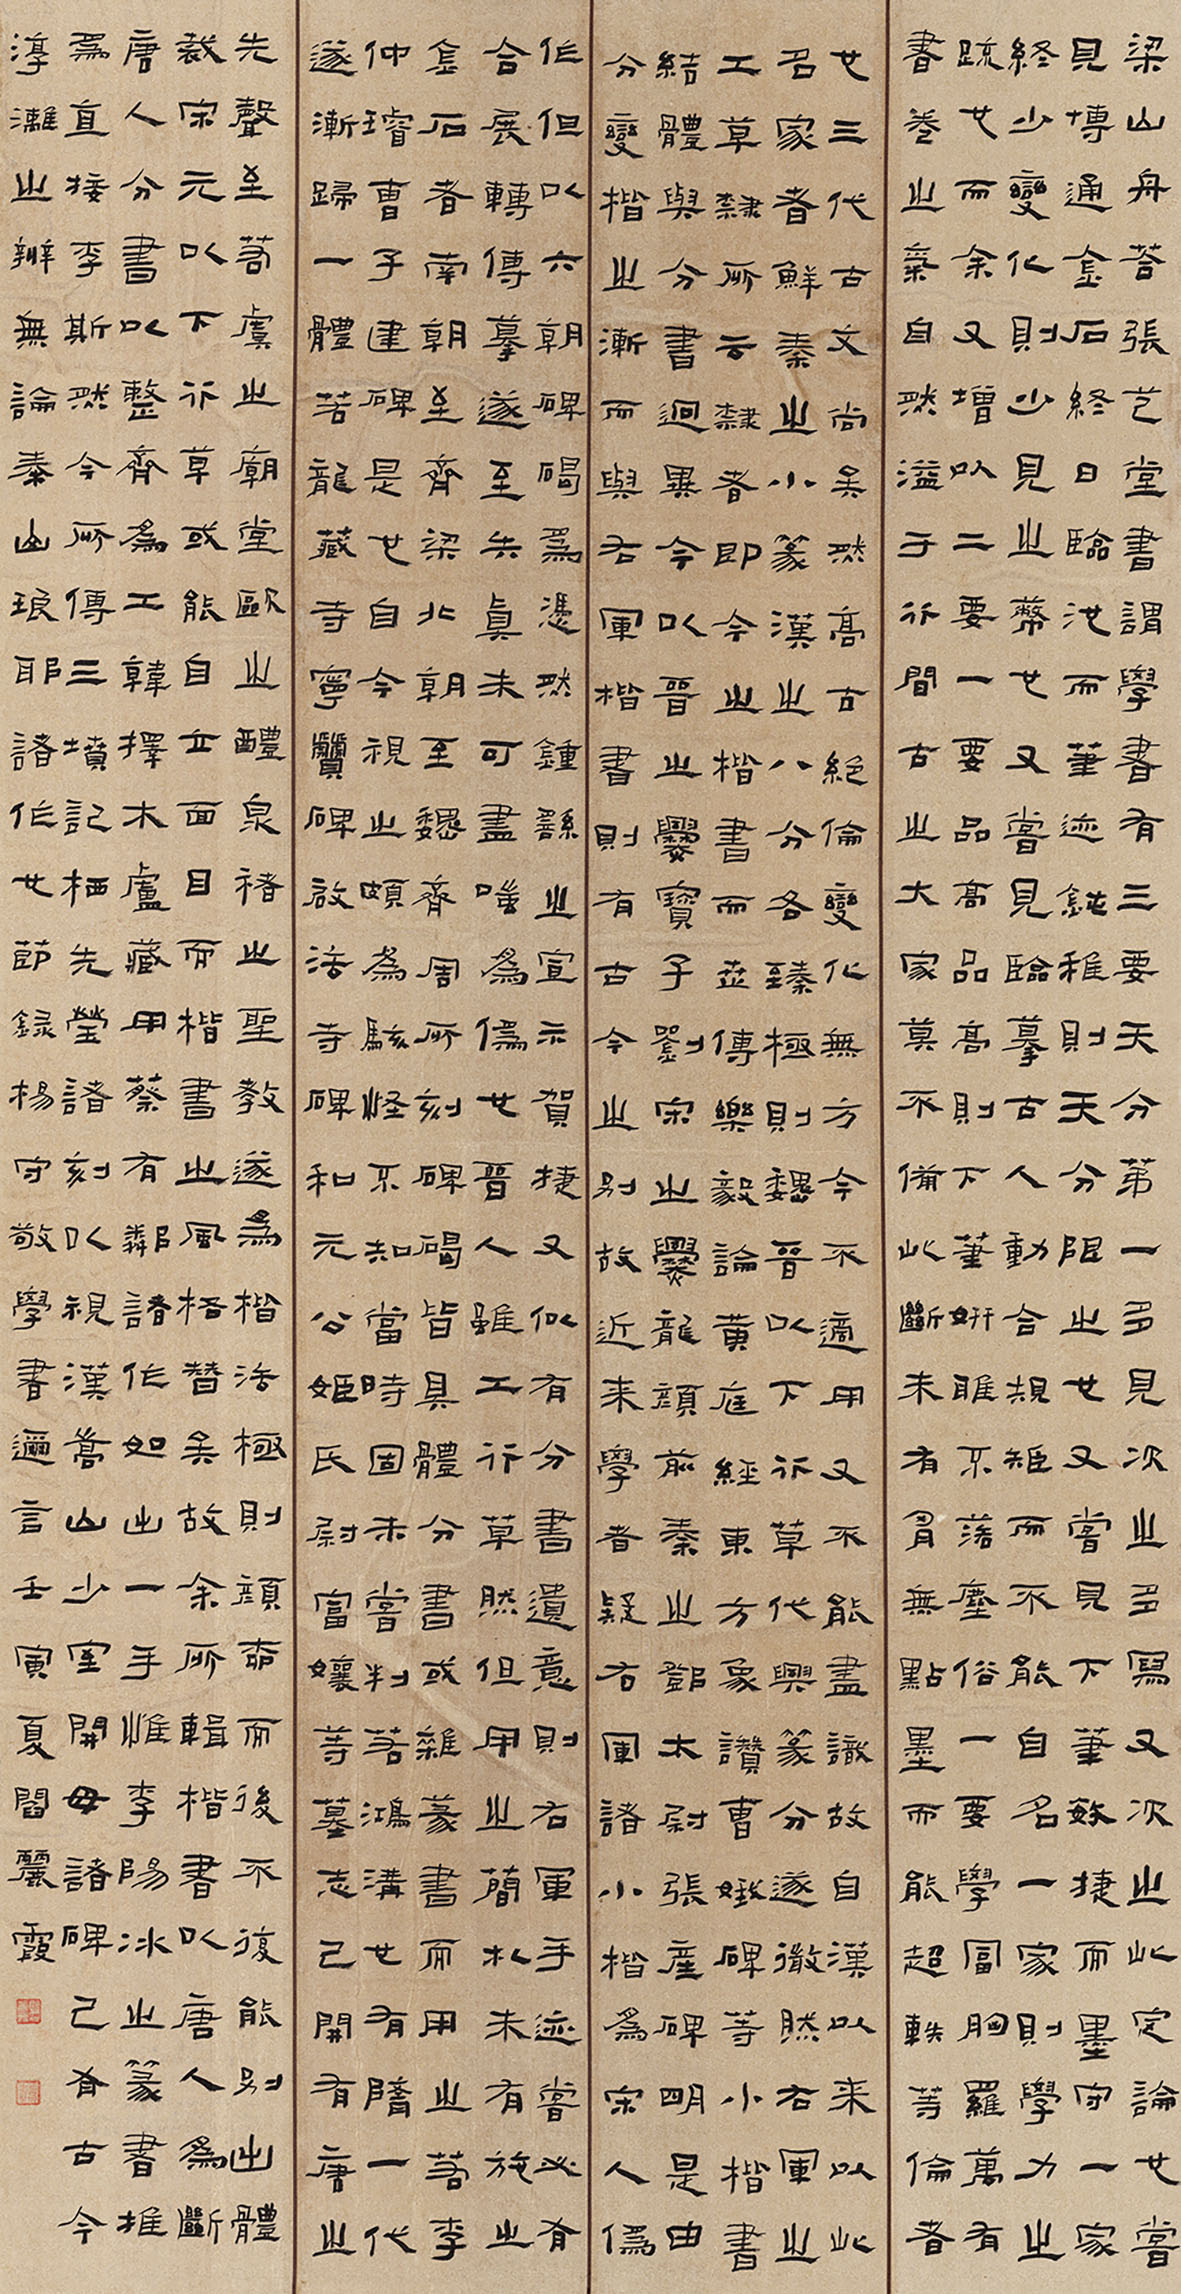 梁山舟答張芑堂書謂學書有三要天分第一多見次之多寫又次之此定論也嘗
見博通金石終日臨池而筆迹鈍稚則天分限之也又嘗見下筆敏捷而墨守一家
終少變化則少見之弊也又嘗見臨摹古人動合規矩而不能自名一家則學力之
疏也而余又增以二要一要品高品高則下筆妍雅不落塵俗一要學富胸羅萬有
書卷之氣自然溢于行間古之大家莫不備此斷未有胸無點墨而能超軼等倫者
也三代古文尚矣然高古絕倫變化無方今不適用又不能盡識故自漢以來以此
名家者鮮秦之小篆漢之八分各臻極則魏晉以下行草代興篆分遂微然右軍之
工草隸所云隸者即今之楷書而並傳樂毅論黃庭經東方象讚曹娥碑等小楷書
結體與分書迥異今以晉之爨寶子劉宋之爨龍顏前秦之鄧太尉張產碑明是由
分變楷之漸而與右軍楷書則有古今之別故近來學者疑右軍諸小楷為宋人偽
作但以六朝碑碣為憑然鍾繇之宣示賀捷又似有分書遺意則右軍手迹嘗必有
合展轉傳摹遂至失真未可盡嗤為偽也晉人雖工行草然但用之簡札未有施之
金石者南朝至齊梁北朝至魏齊周所刻碑碣皆具體分書或雜篆書而用之若李
仲璿曹子建碑是也自今視之頗為駭怪不知當時固未嘗判若鴻溝也有隋一代
遂漸歸一體若龍藏寺寧贙碑啟法寺碑和元公姬氏尉富孃等墓志已開有唐之
先聲至若虞之廟堂歐之醴泉褚之聖教遂為楷法極則顏而後不復能別出體
裁宋元以下行草或能自立面目而楷書之風格替矣故余所輯楷書以唐人為斷
唐人分書以整齊為工韓擇木盧藏用蔡有鄰諸作如出一手惟李陽冰之篆書推
為直接李斯然今所傳三墳記栖先塋諸刻以視漢嵩山少室開母諸碑已有古今
淳漓之辨無論泰山琅耶諸作也節錄楊守敬學書邇言壬寅夏閻麗霞